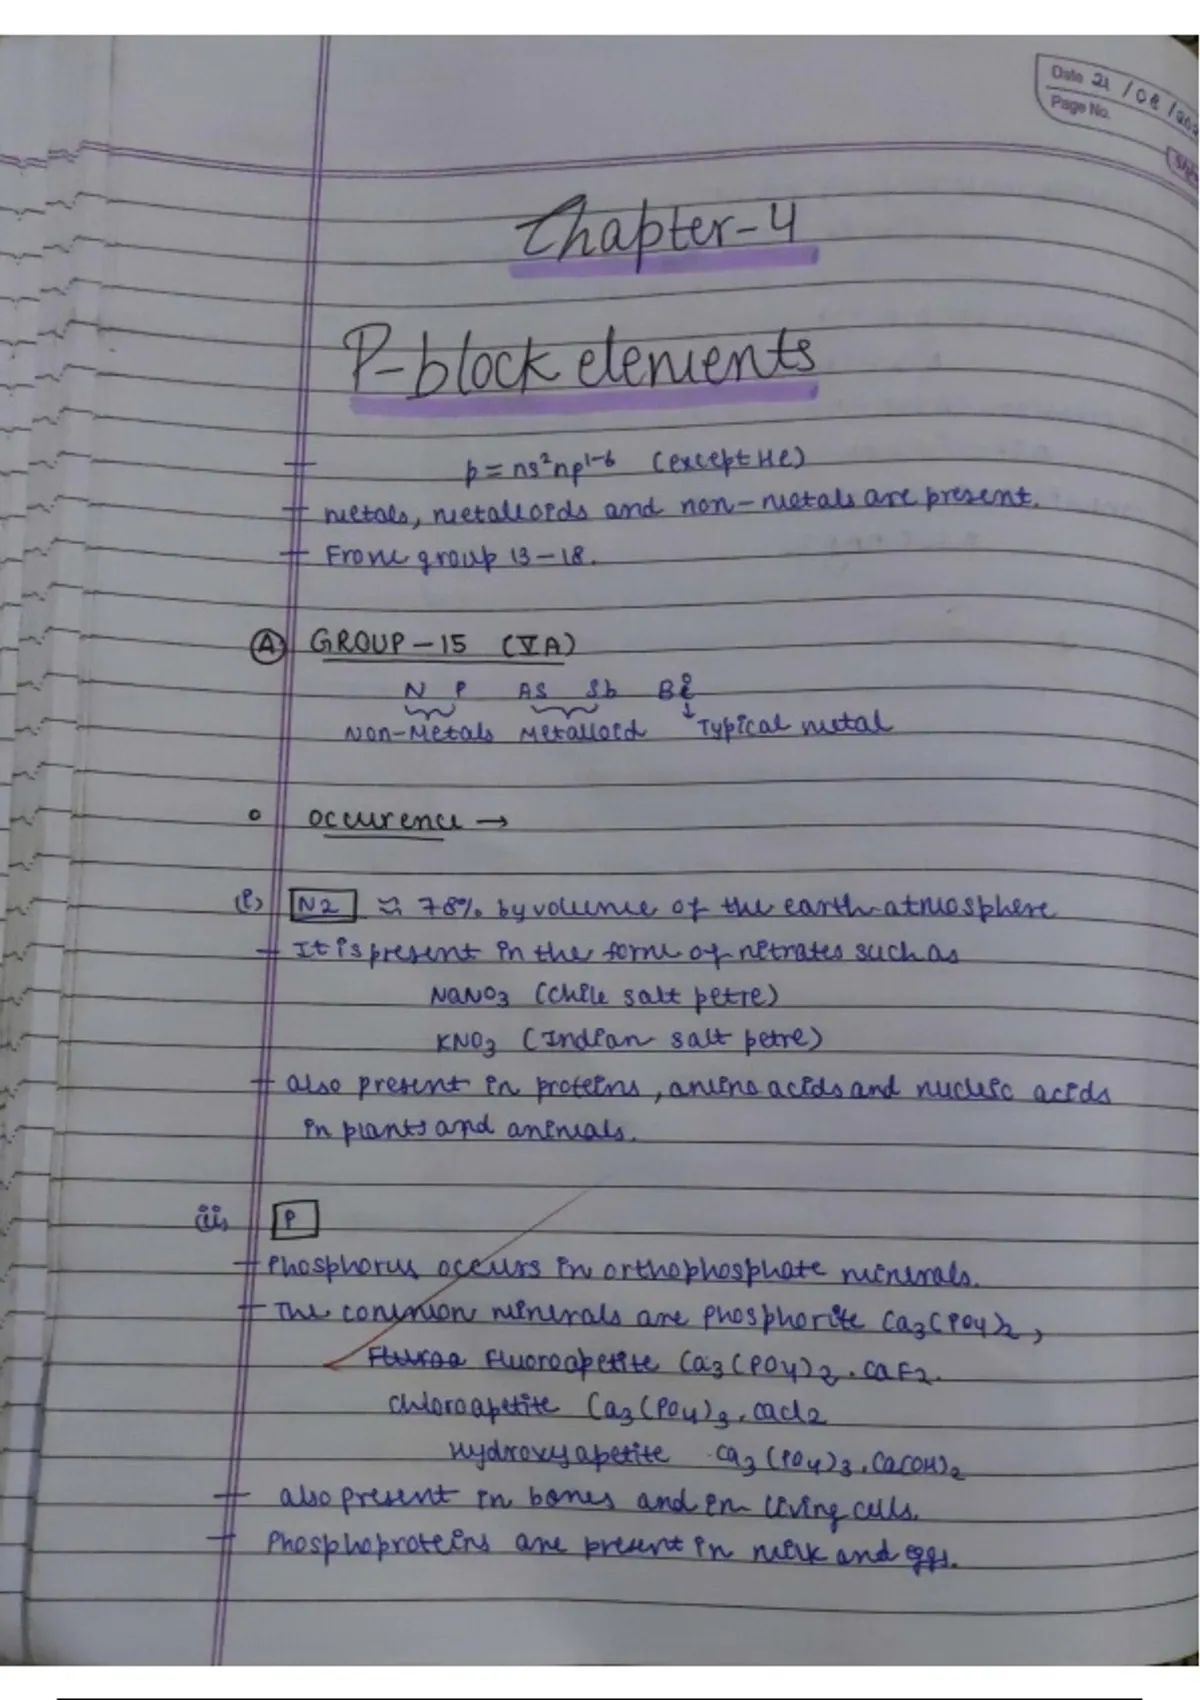 Date 21/08/202
Page No.
Chapter-4
P-block elements
p = ns²np¹⁻⁶ (except He)
metals, metalloids and non-metals are present.
From group 13-18.
(A) GROUP-15 (VA)
N P As Sb Bi
Non-Metals Metalloid ↓ Typical metal
o occurence →
(i) N2 ≈ 78% by volume of the earth atmosphere
It is present in the form of nitrates such as
NaNO3 (Chile salt petre)
KNO3 (Indian salt petre)
also present in proteins, amino acids and nucleic acids
in plants and animals.
(ii) P
Phosphorus occurs in orthophosphate minerals.
The common minerals are phosphorite Ca3(PO4)2,
Fluoroapetite Ca3(PO4)2.CaF2.
chloroapetite Ca3(PO4)3.CaCl2
Hydroxyapetite Ca3(PO4)3.Ca(OH)2
also present in bones and in living cells.
Phosphoproteins are present in milk and eggs.